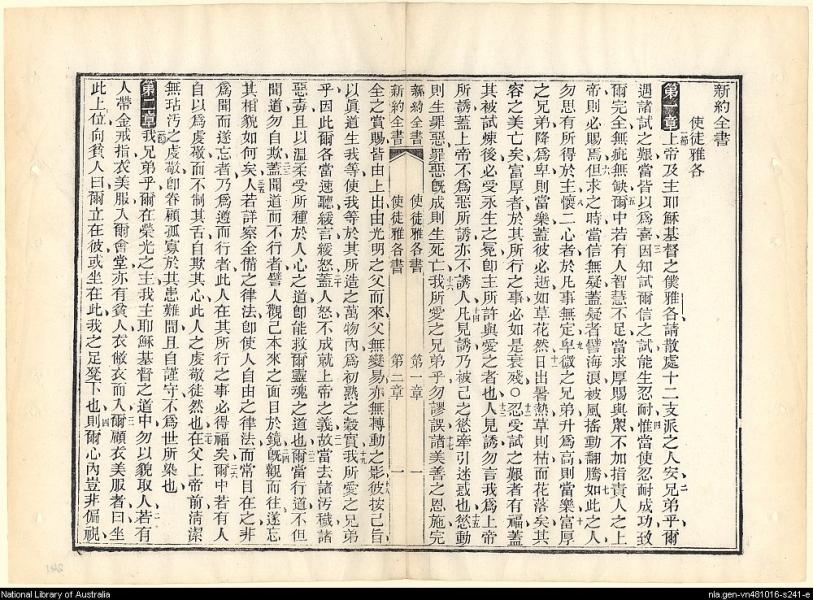 新約全書
使徒雅各
第一章上帝及主耶穌基督之僕雅各請散處十二支派之人安兄弟乎爾
遇諸試之艱當皆以爲喜因知試爾信之試能生忍耐惟當使忍耐成功致
爾完全無疵無缺爾中若有人智慧不足當求厚賜與衆不加指責人之上
帝則必賜焉但求之時當信無疑蓋疑者譬海浪被風搖動翻騰如此之人
勿思有所得於主懷二心者於凡事無定卑微之兄弟升爲高則當樂富厚
之兄弟降爲卑則當樂蓋彼必逝如草花然日出暑熱草則枯而花落矣其
容之美亡矣富厚者於其所行之事必如是衰殘○忍受試之艱者有福蓋
其被試煉後必受永生之冕卽主所許與愛之者也人見誘勿言我爲上帝
所誘蓋上帝不爲惡所誘亦不誘人凡見誘乃被己之慾牽引迷惑也慾動
則生罪惡罪惡旣成則生死亡我所愛之兄弟乎勿謬誤諸美善之恩施完
新約全書 使徒雅各書 第一章 一
新約全書 使徒雅各書 第二章 一
全之賞賜皆由上出由光明之父而來父無變易亦無轉動之影彼按己旨
以眞道生我等使我等於其所造之萬物內爲初熟之穀實我所愛之兄弟
乎因此爾各當速聽緩言緩怒蓋人怒不成就上帝之義故當去諸汚穢諸
惡毒且以溫柔受所種於人心之道卽能救爾靈魂之道也爾當行道不但
聞道勿自欺蓋聞道而不行者譬人觀己本來之面目於鏡旣觀而往遂忘
其相貌如何矣人若詳察全備之律法卽使人自由之律法而常目在之非
爲聞而遂忘者乃爲遵而行者此人在其所行之事必得福矣爾中若有人
自以爲虔敬而不制其舌自欺其心此人之虔敬徒然也在父上帝前淸潔
無玷汚之虔敬卽眷顧孤寡於其患難間且自謹守不爲世所染也
第二章我兄弟乎爾在榮光之主我主耶穌基督之道中勿以貌取人若有
人帶金戒指衣美服入爾會堂亦有貧人衣敝衣而入爾顧衣美服者曰坐
此上位向貧人曰爾立在彼或坐在此我之足凳下也則爾心內豈非偏視
National Library of Australia
nla.gen-vn481016-s241-e